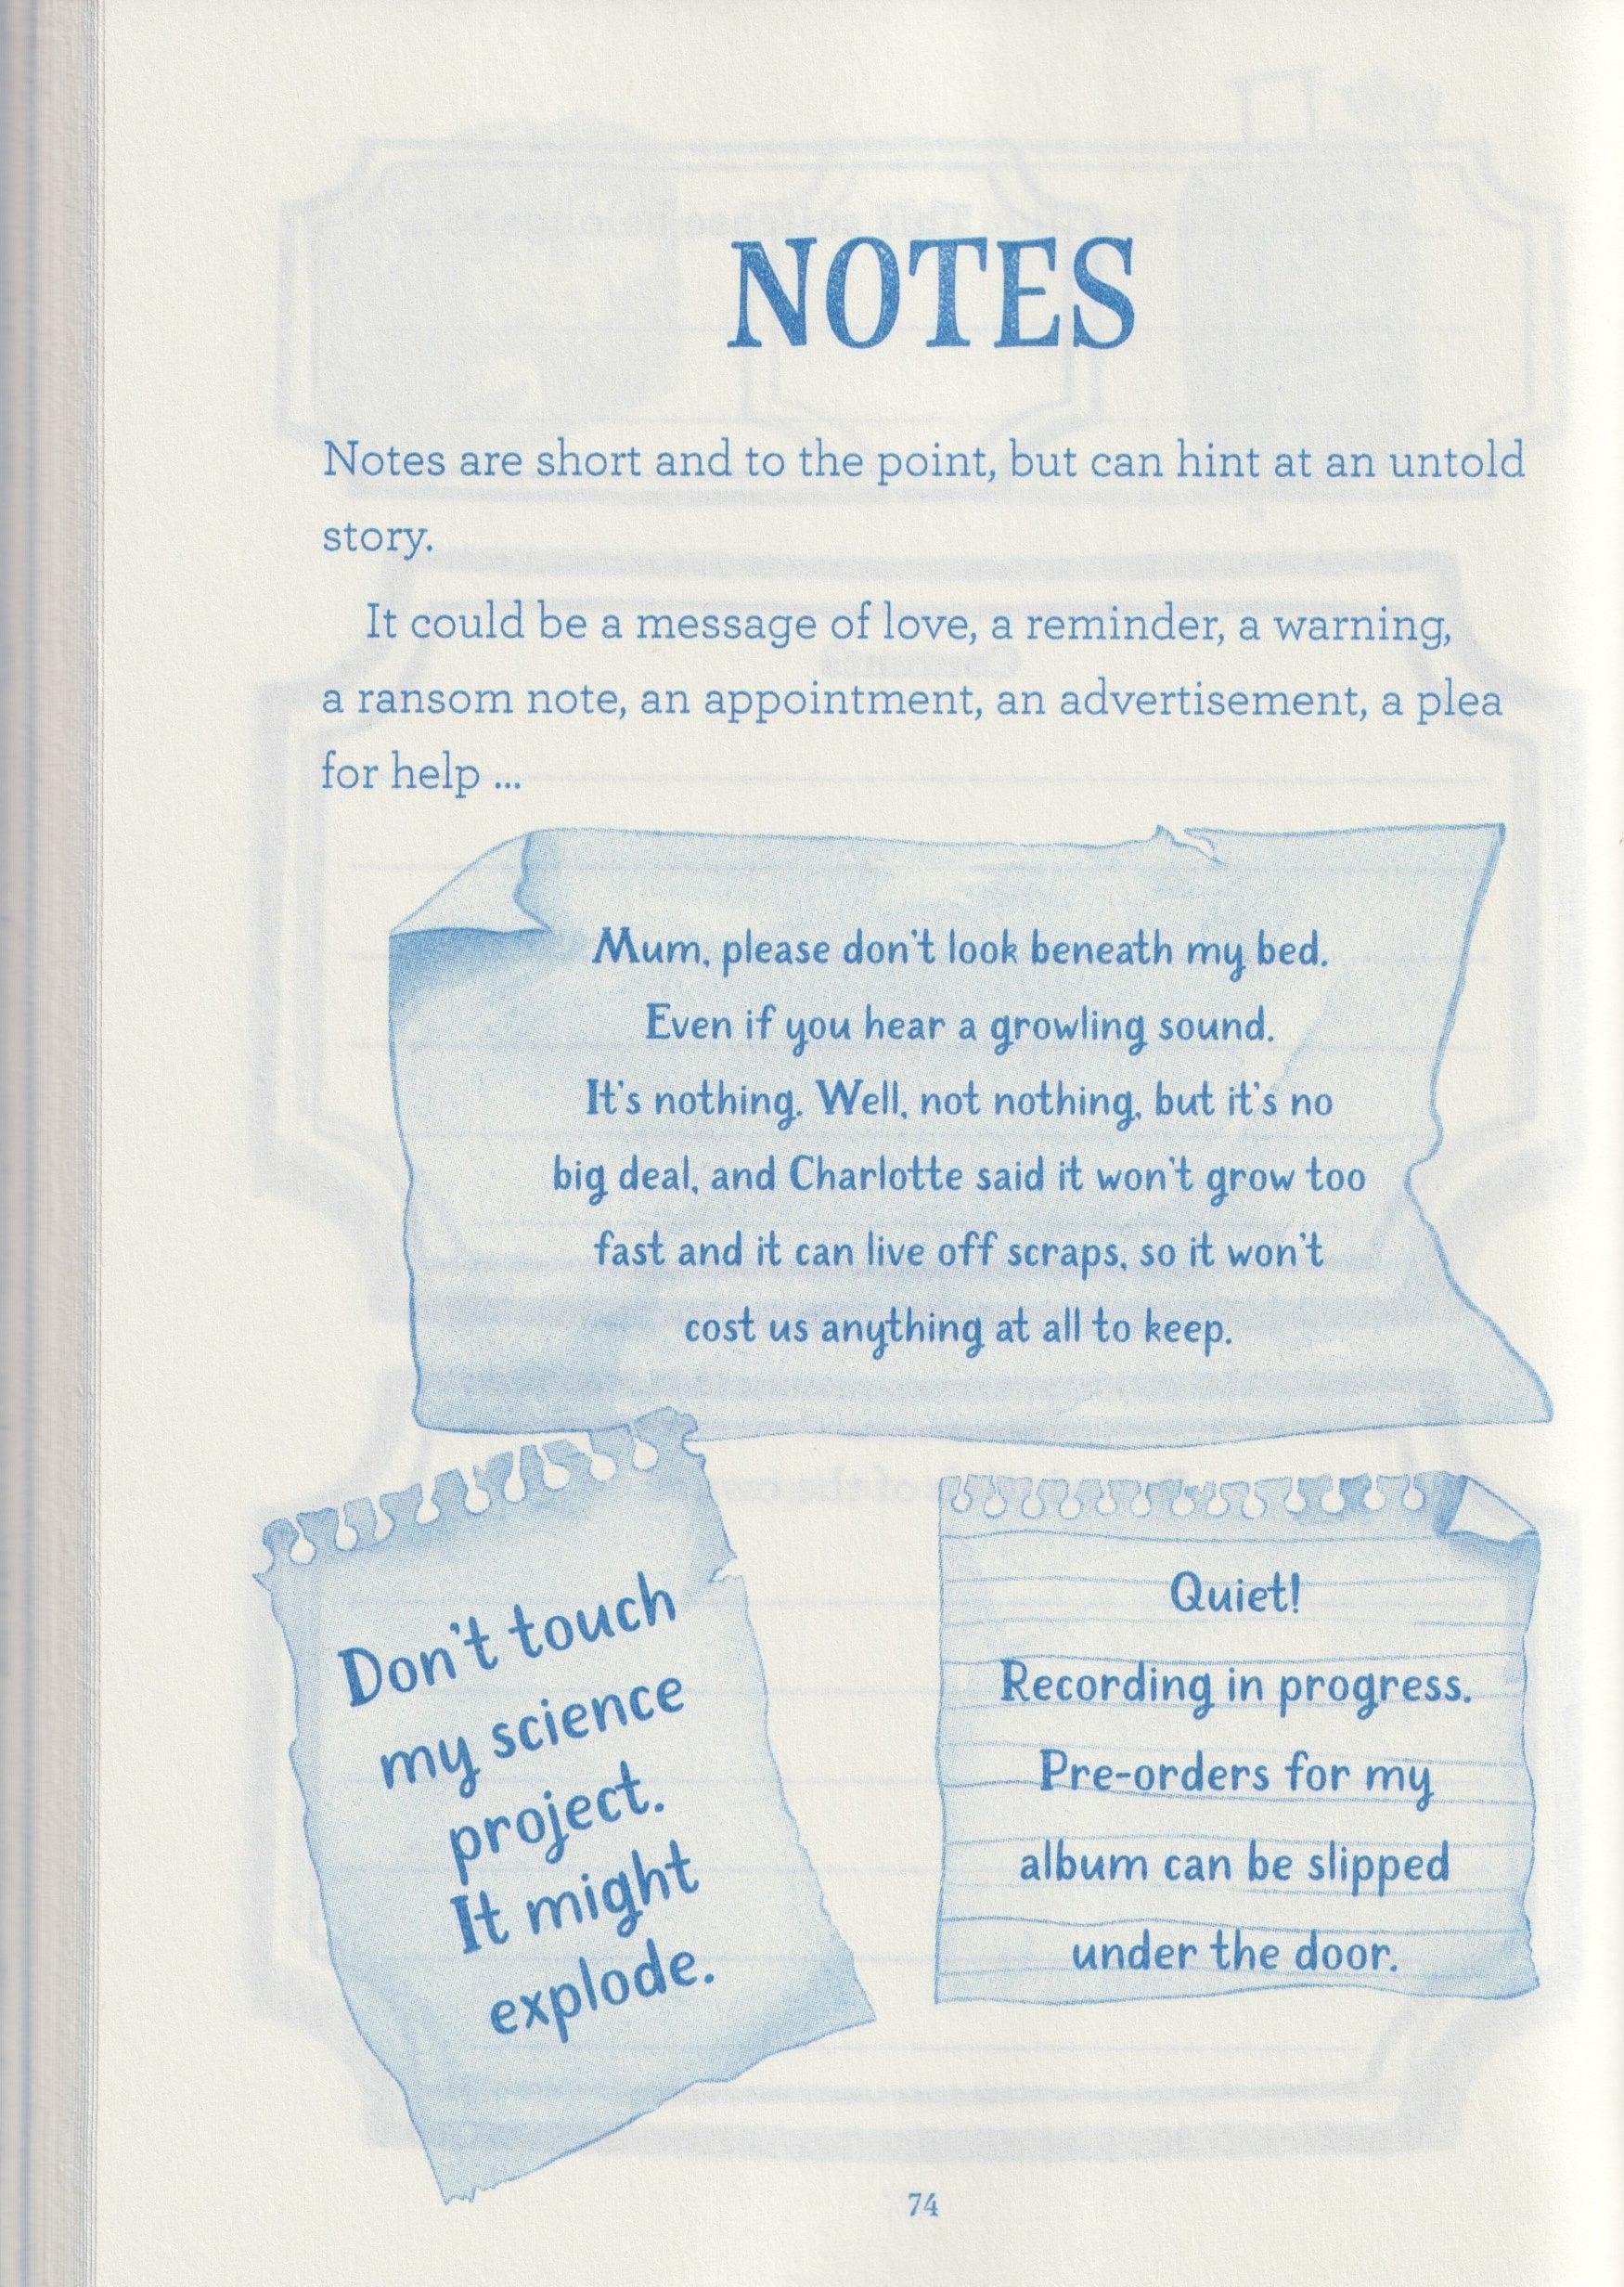 NOTES
Notes are short and to the point, but can hint at an untold
story.
It could be a message of love, a reminder, a warning,
a ransom note, an appointment, an advertisement, a plea
for help ...
Mum, please don't look beneath my bed.
Even if you hear a growling sound.
It's nothing. Well, not nothing, but it's no
big deal, and Charlotte said it won't grow too
fast and it can live off scraps, so it won't
cost us anything at all to keep.
Don't touch
my science
project.
It might
explode.
Quiet!
Recording in progress.
Pre-orders for my
album can be slipped
under the door.
74